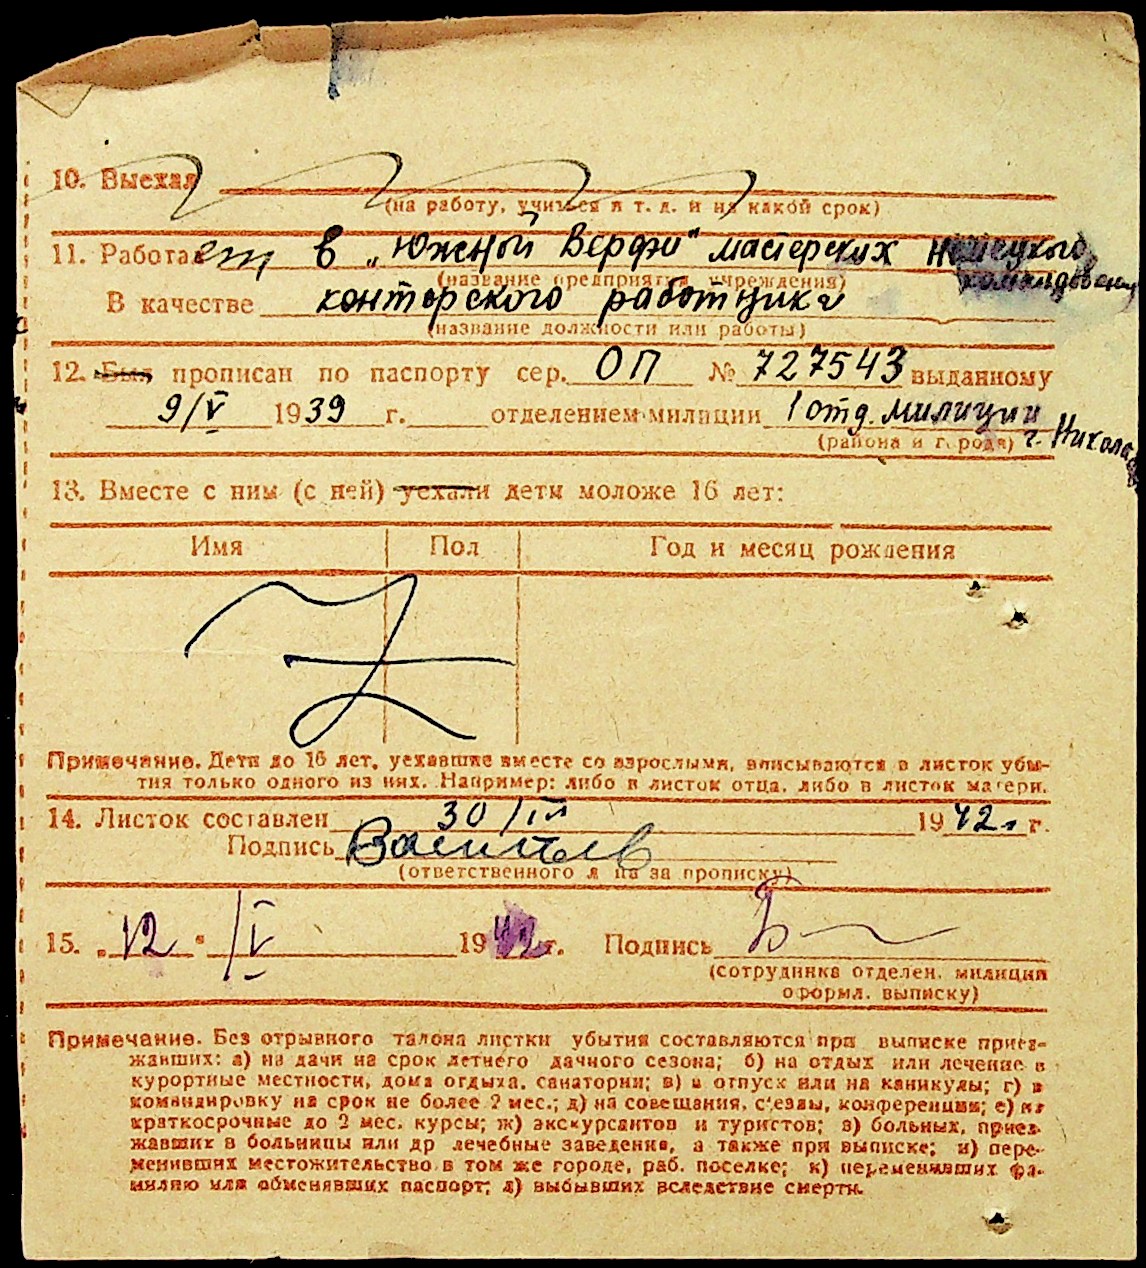 10. Выехал
(на работу, учиться и т. д. и на какой срок)
11. Работает в „Южной Верфи" мастерских немецкого
командован
(название предприятия, учреждения)
В качестве конторского работника
(название должности или работы)
12. Был прописан по паспорту сер. ОП № 727543 выданному
9/V 1939 г. отделением милиции 1 отд. милиции
(района и города) г. Никола
13. Вместе с ним (с ней) уехали дети моложе 16 лет:
Имя Пол Год и месяц рождения
Примечание. Дети до 16 лет, уехавшие вместе со взрослыми, вписываются в листок убы-
тия только одного из них. Например: либо в листок отца, либо в листок матери.
14. Листок составлен 30/IV 1942 г.
Подпись Васильев
(ответственного лица за прописку)
15. „12" /V 1942 г. Подпись
(сотрудника отделен. милиции
оформл. выписку)
Примечание. Без отрывного талона листки убытия составляются при выписке приез-
жавших: а) на дачи на срок летнего дачного сезона; б) на отдых или лечение в
курортные местности, дома отдыха, санатории; в) в отпуск или на каникулы; г) в
командировку на срок не более 2 мес.; д) на совещания, с'езды, конференции; е) на
краткосрочные до 2 мес. курсы; ж) экскурсантов и туристов; з) больных, приез-
жавших в больницы или др лечебные заведения, а также при выписке; и) пере-
менивших местожительство в том же городе, раб. поселке; к) переменивших фа-
милию или обменявших паспорт; л) выбывших вследствие смерти.